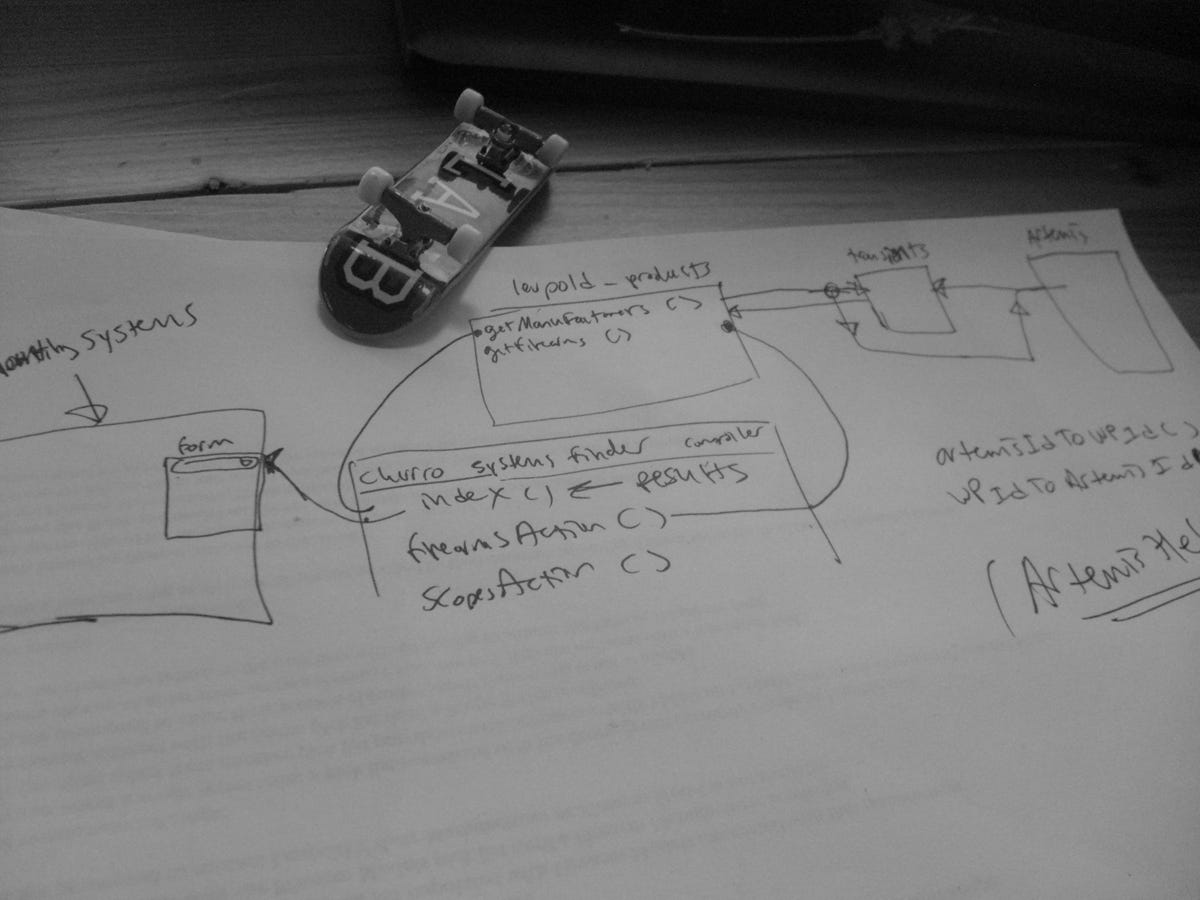 systems
form
leupold_products
getManufacturers ()
getfirearms ()
transients
Artemis
churro systems finder controller
index () ← results
firearmsAction ()
scopesAction ()
artemisIdToWPId()
WPIdToArtemisId
(Artemis Hel
B
A